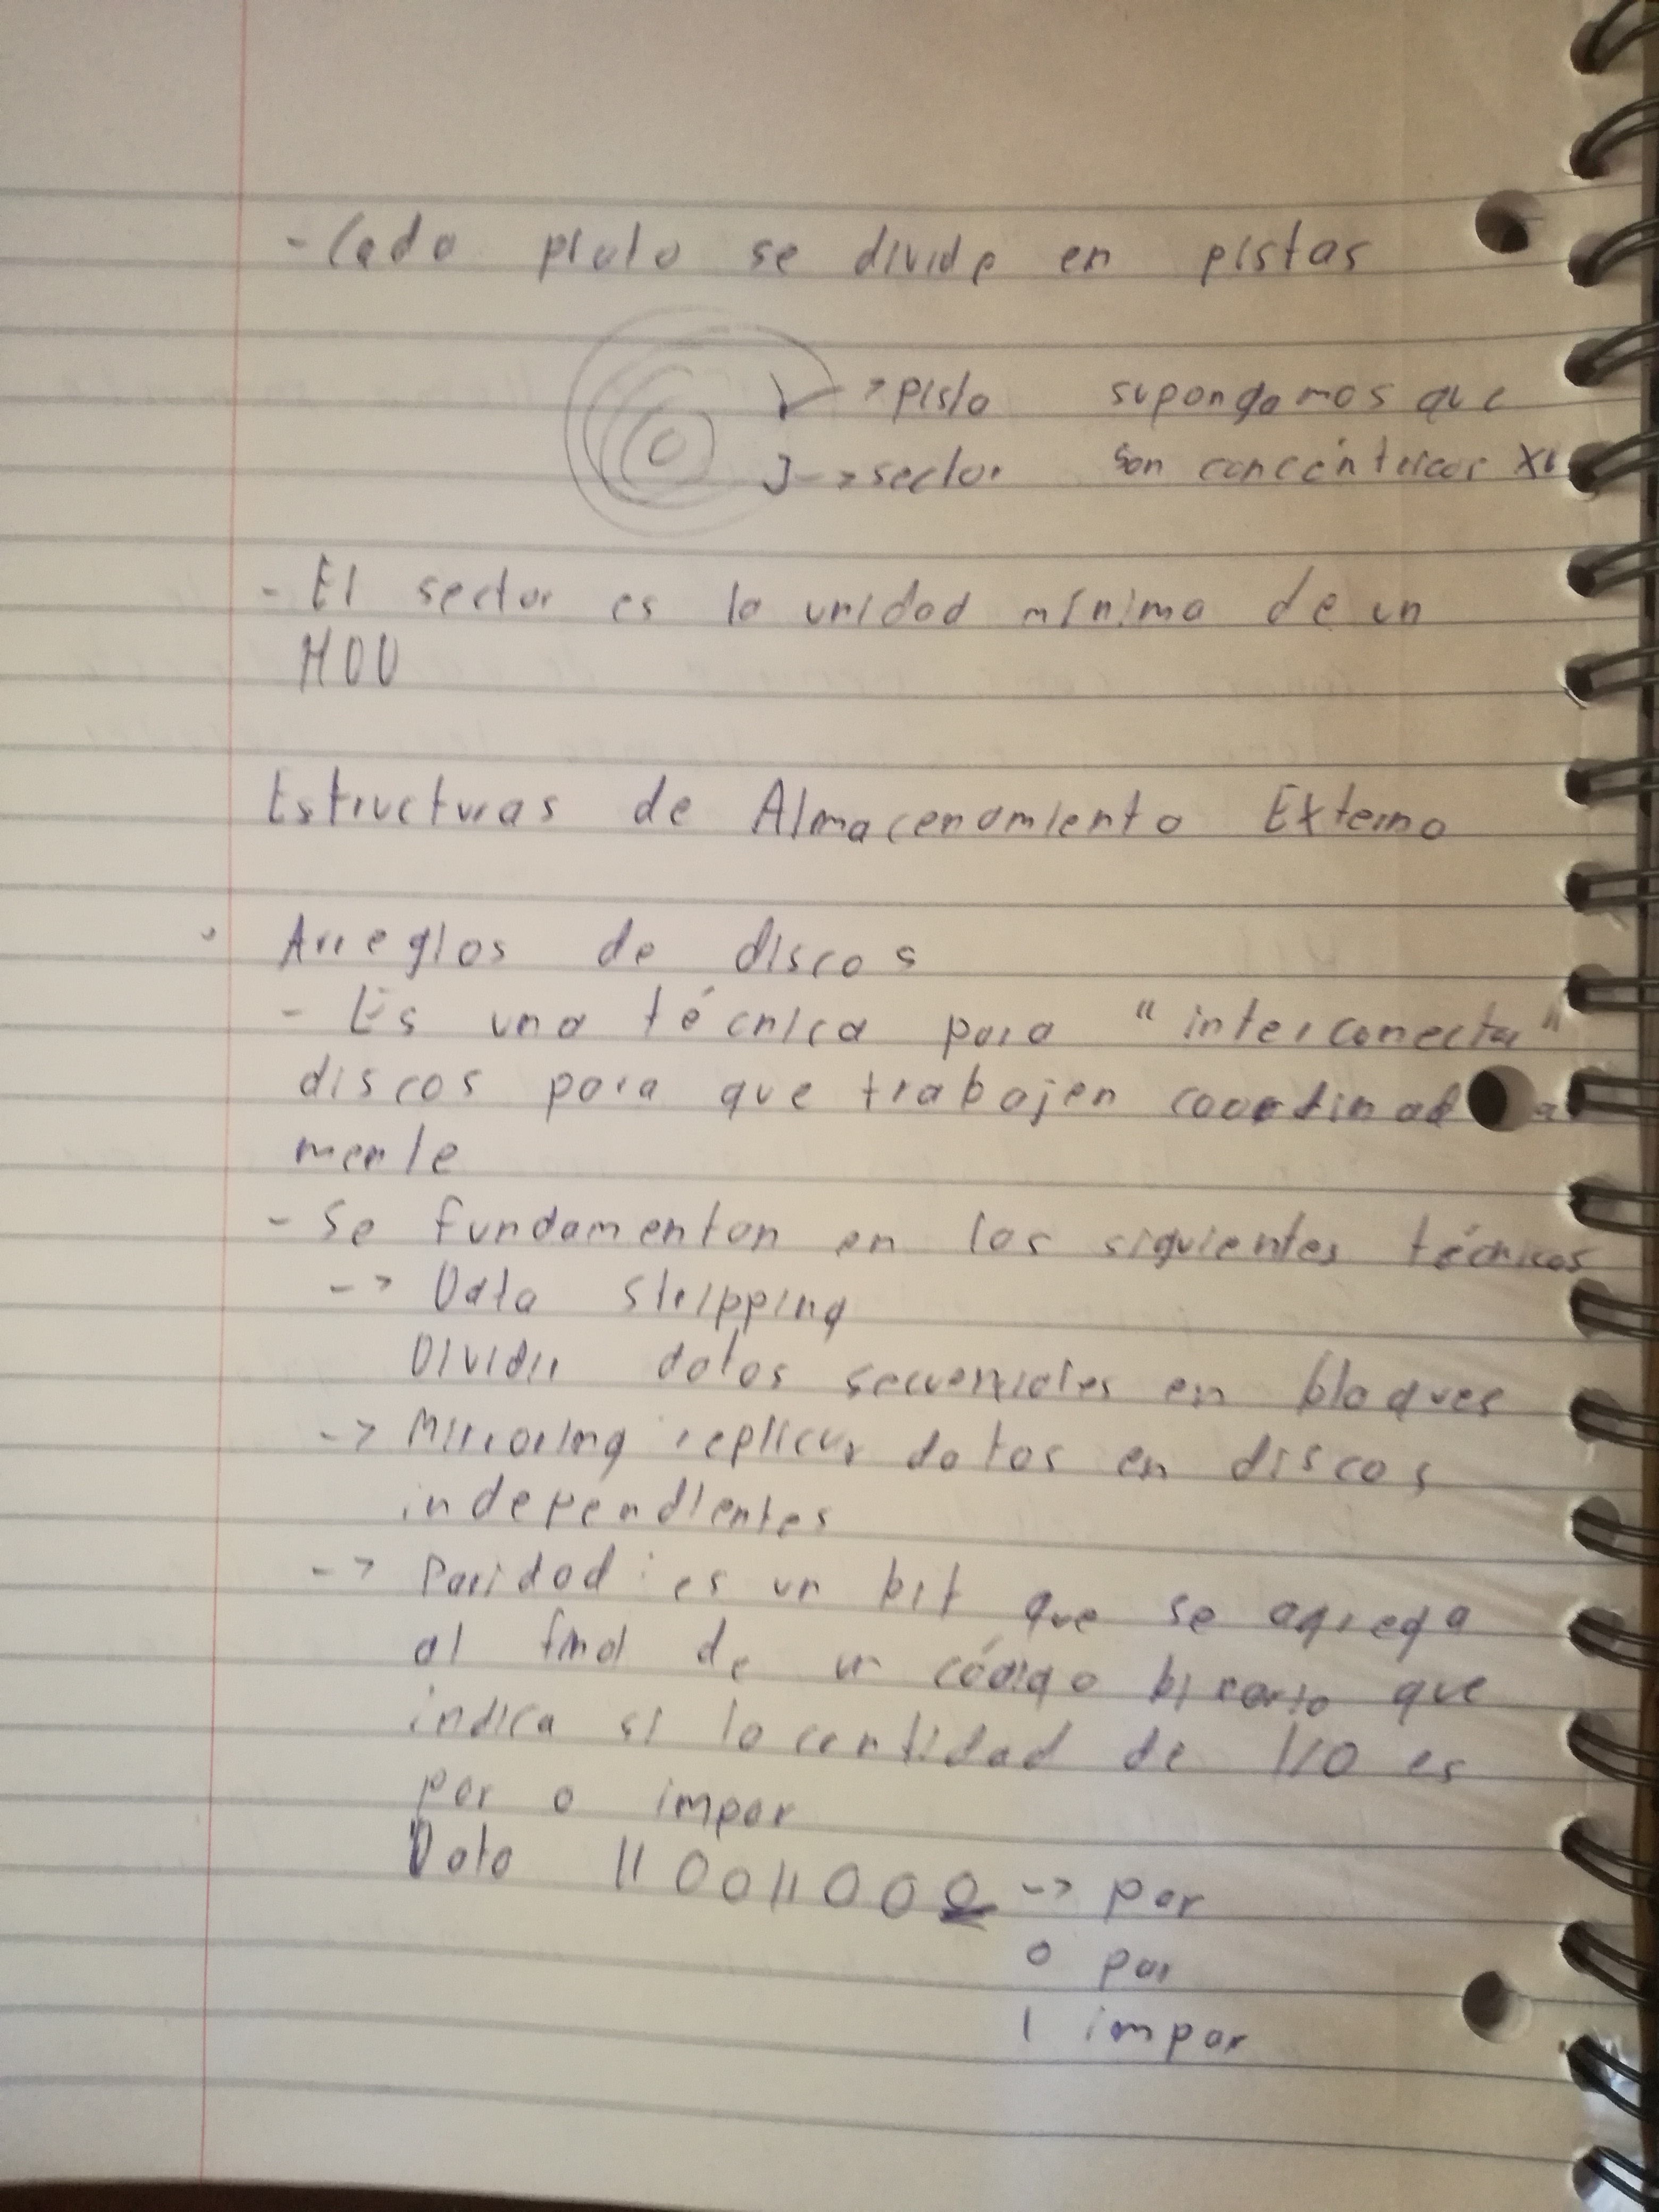 - Cada plato se divide en pistas
-> pista supongamos que
-> sector son concéntricos XD
- El sector es la unidad mínima de un
HDD
Estructuras de Almacenamiento Externo
• Arreglos de discos
- Es una técnica para "interconectar"
discos para que trabajen coordinada
mente
- Se fundamentan en las siguientes técnicas
-> Data stripping
Dividir datos secuenciales en bloques
-> Mirroring replicar datos en discos
independientes
-> Paridad: es un bit que se agrega
al final de un código binario que
indica si la cantidad de 1/0 es
par o impar
Dato 110011000 -> par
0 par
1 impar